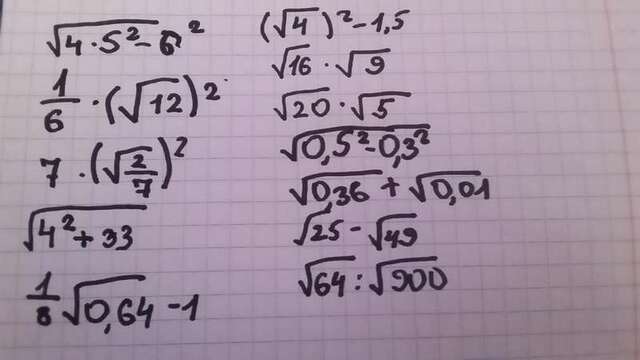 √4·5²-6²
1/6 · (√12)²
7 · (√2/7)²
√4²+33
1/8 √0,64 -1
(√4)² -1,5
√16 · √9
√20 · √5
√0,5²-0,3²
√0,36 + √0,01
√25 - √49
√64 : √900